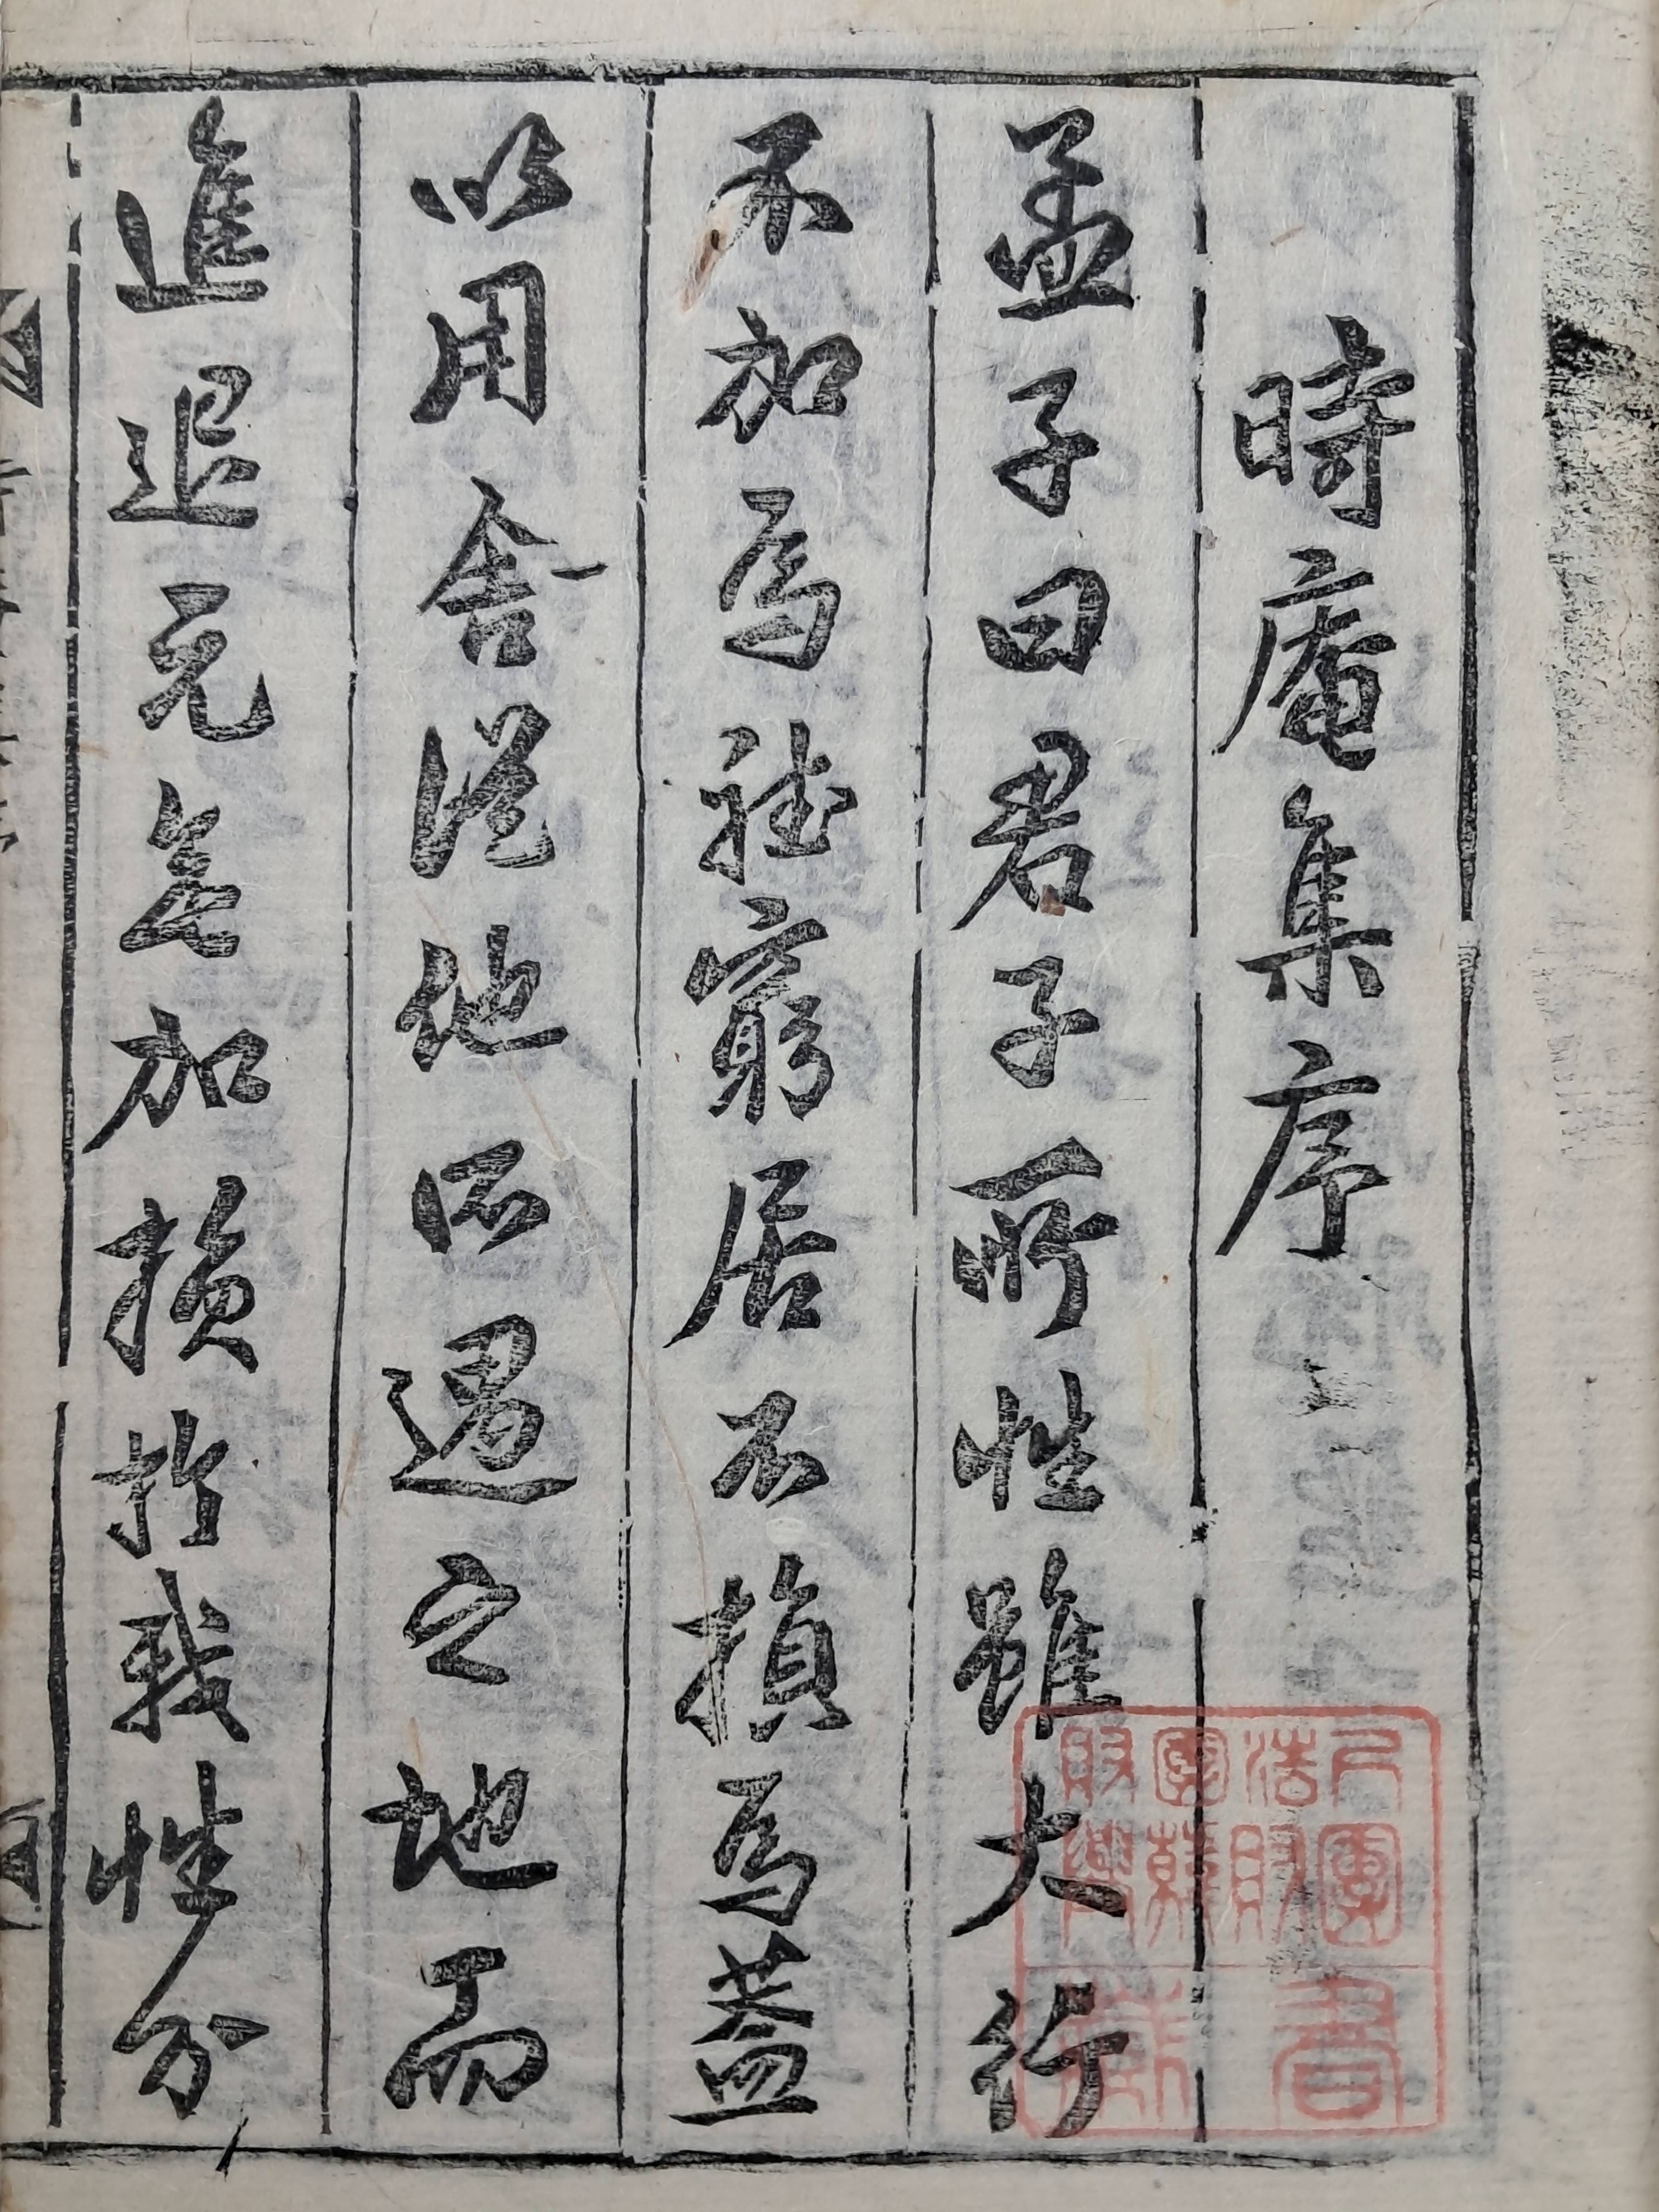 時庵集序
孟子曰君子所性雖大行
不加焉雖窮居不損焉蓋
以用舍從他所遇之地而
進退元無加損於我性分